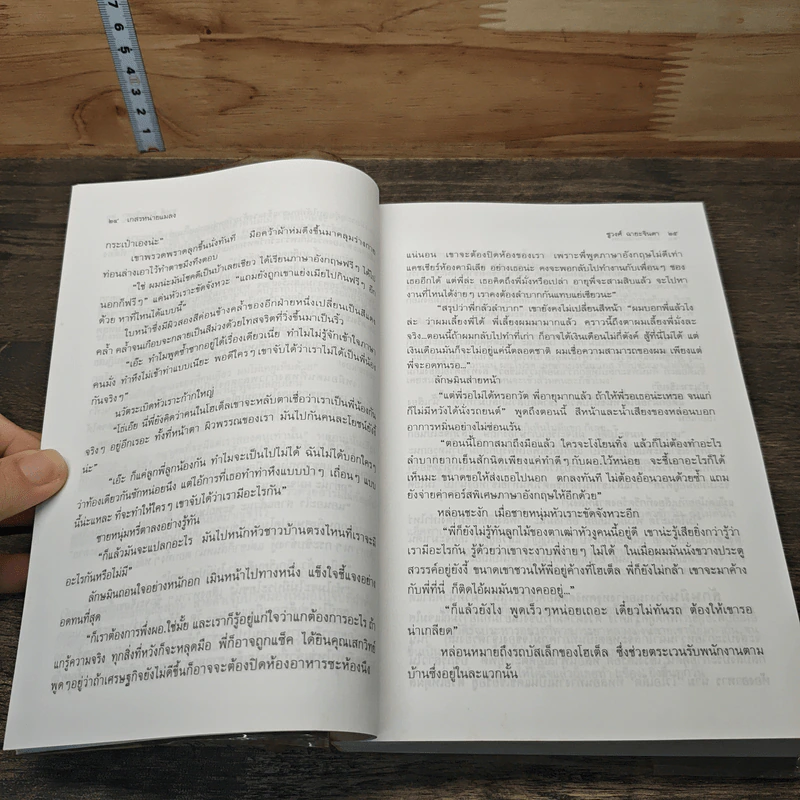 7 6 5 4 3 2 1
๒๔ เกสรหน่ายแมลง
กระเป๋าเองน่ะ"
เขาพรวดพราดลุกขึ้นนั่งทันที มือคว้าผ้าห่มดึงขึ้นมาคลุมร่างกาย
ท่อนล่างเอาไว้ทำตาขมึงทึงตอบ
"ใช่ ผมน่ะมันโชคดีเป็นบ้าเลยเชียว ได้เรียนภาษาอังกฤษฟรีๆ ได้ไป
นอกก็ฟรีๆ" แค่นหัวเราะขัดจังหวะ "แถมยังถูกเขาแย่งเมียไปกินฟรีๆ อีก
ด้วย หาที่ไหนได้แบบนี้"
ใบหน้าซึ่งมีผิวสองสีค่อนข้างคล้ำของอีกฝ่ายหนึ่งเปลี่ยนเป็นสีแดง
คล้ำ คล้ำจนเกือบจะกลายเป็นสีม่วงด้วยโทสจริตที่วิ่งขึ้นมาเป็นริ้ว
"เอ๊ะ ทำไมพูดซ้ำซากอยู่ได้เรื่องเดียวเนี่ย ทำไมไม่รู้จักเข้าใจภาษา
คนมั่ง ทำหึงไม่เข้าท่าแบบเนี่ยะ พอดีใครๆ เขาจับได้ว่าเราไม่ได้เป็นพี่น้อง
กันจริงๆ"
นวัตระเบิดหัวเราะก๊ากใหญ่
"โธ่เอ๊ย นี่พี่ยังคิดว่าคนในโฮเต็ลเขาจะหลับตาเชื่อว่าเราเป็นพี่น้องกัน
จริงๆ อยู่อีกเรอะ ทั้งที่หน้าตา ผิวพรรณของเรา มันไปกันคนละโยชน์ยังงี้
น่ะ"
"เอ๊ะ ก็แค่ลูกพี่ลูกน้องกัน ทำไมจะเป็นไปไม่ได้ ฉันไม่ได้บอกใครๆ
ว่าท้องเดียวกันซักหน่อยนึง แต่ไอ้การที่เธอทำท่าหึงแบบบ้าๆ เถื่อนๆ แบบ
นี้น่ะแหละ ที่จะทำให้ใครๆ เขาจับได้ว่าเรามีอะไรกัน"
ชายหนุ่มหรี่ตาลงอย่างรู้ทัน
"ก็แล้วมันจะแปลกอะไร มันไปหนักหัวชาวบ้านตรงไหนที่เราจะมี
อะไรกันหรือไม่มี"
ลักษมินถอนใจอย่างหนักอก เมินหน้าไปทางหนึ่ง แข็งใจชี้แจงอย่าง
อดทนที่สุด
"ก็เราต้องการพึ่งผอ.ใช่มั้ย และเราก็รู้อยู่แก่ใจว่าแกต้องการอะไร ถ้า
แกรู้ความจริง ทุกสิ่งที่หวังก็จะหลุดมือ พี่ก็อาจถูกแซ็ค ได้ยินคุณเสกวิทย์
พูดๆ อยู่ว่าถ้าเศรษฐกิจยังไม่ดีขึ้นก็อาจจะต้องปิดห้องอาหารซะห้องนึง
ชูวงศ์ ฉายะจินดา ๒๕
แน่นอน เขาจะต้องปิดห้องของเรา เพราะพี่พูดภาษาอังกฤษไม่ดีเท่า
แคชเชียร์ห้องคามิเลีย อย่างเธอน่ะ คงจะพอกลับไปทำงานกับเพื่อนๆ ของ
เธอก็ได้ แต่พี่ล่ะ เธอคิดถึงพี่มั่งหรือเปล่า อายุพี่จะสามสิบแล้ว จะไปหา
งานที่ไหนได้ง่ายๆ เราคงต้องลำบากกันแทบแย่เชียวนะ"
"สรุปว่าพี่กลัวลำบาก" เขายังคงไม่เปลี่ยนสีหน้า "ผมบอกพี่แล้วไง
ล่ะ ว่าผมเลี้ยงพี่ได้ พี่เลี้ยงผมมามากแล้ว คราวนี้ถึงตาผมเลี้ยงพี่มั่งละ
จริง...ตอนนี้ถ้าผมกลับไปทำที่เก่า ก็อาจได้เงินเดือนไม่กี่ตังค์ สู้ที่นี่ไม่ได้ แต่
เงินเดือนมันก็จะไม่อยู่แค่นี้ตลอดชาติ ผมเชื่อความสามารถของผม เพียงแต่
พี่จะอดทนรอ..."
ลักษมินส่ายหน้า
"แต่พี่รอไม่ได้หรอกวัต พี่อายุมากแล้ว ถ้าให้พี่รอเธอน่ะเหรอ จนแก่
ก็ไม่มีหวังได้นั่งรถยนต์" พูดถึงตอนนี้ สีหน้าและน้ำเสียงของหล่อนบอก
อาการหมิ่นอย่างไม่ซ่อนเร้น
"ตอนนี้โอกาสมาถึงมือแล้ว ใครจะโง่โยนทิ้ง แล้วก็ไม่ต้องทำอะไร
ลำบากยากเย็นสักนิดเพียงแค่ทำดีๆ กับผอ.ไว้หน่อย จะชี้เอาอะไรก็ได้
เห็นมะ ขนาดขอให้ส่งเธอไปนอก ตกลงทันที ไม่ต้องอ้อนวอนด้วยซ้ำ แถม
ยังจ่ายค่าคอร์สพิเศษภาษาอังกฤษให้อีกด้วย"
หล่อนชะงัก เมื่อชายหนุ่มหัวเราะขัดจังหวะอีก
"พี่ก็ยังไม่รู้ทันลูกไม้ของตาเฒ่าหัวงูคนนี้อยู่ดี เขาน่ะรู้เสียยิ่งกว่ารู้ว่า
เรามีอะไรกัน รู้ด้วยว่าเขาจะงาบพี่ง่ายๆ ไม่ได้ ในเมื่อผมมันนั่งขวางประตู
สวรรค์อยู่ยังงี้ ขนาดเขาชวนให้พี่อยู่ค้างที่โฮเต็ล พี่ก็ยังไม่กล้า เขาจะมาค้าง
กับพี่ที่นี่ ก็ติดไอ้ผมมันขวางคออยู่..."
"ก็แล้วยังไง พูดเร็วๆ หน่อยเถอะ เดี๋ยวไม่ทันรถ ต้องให้เขารอ
น่าเกลียด"
หล่อนหมายถึงรถบัสเล็กของโฮเต็ล ซึ่งช่วยตระเวนรับพนักงานตาม
บ้านซึ่งอยู่ในละแวกนั้น